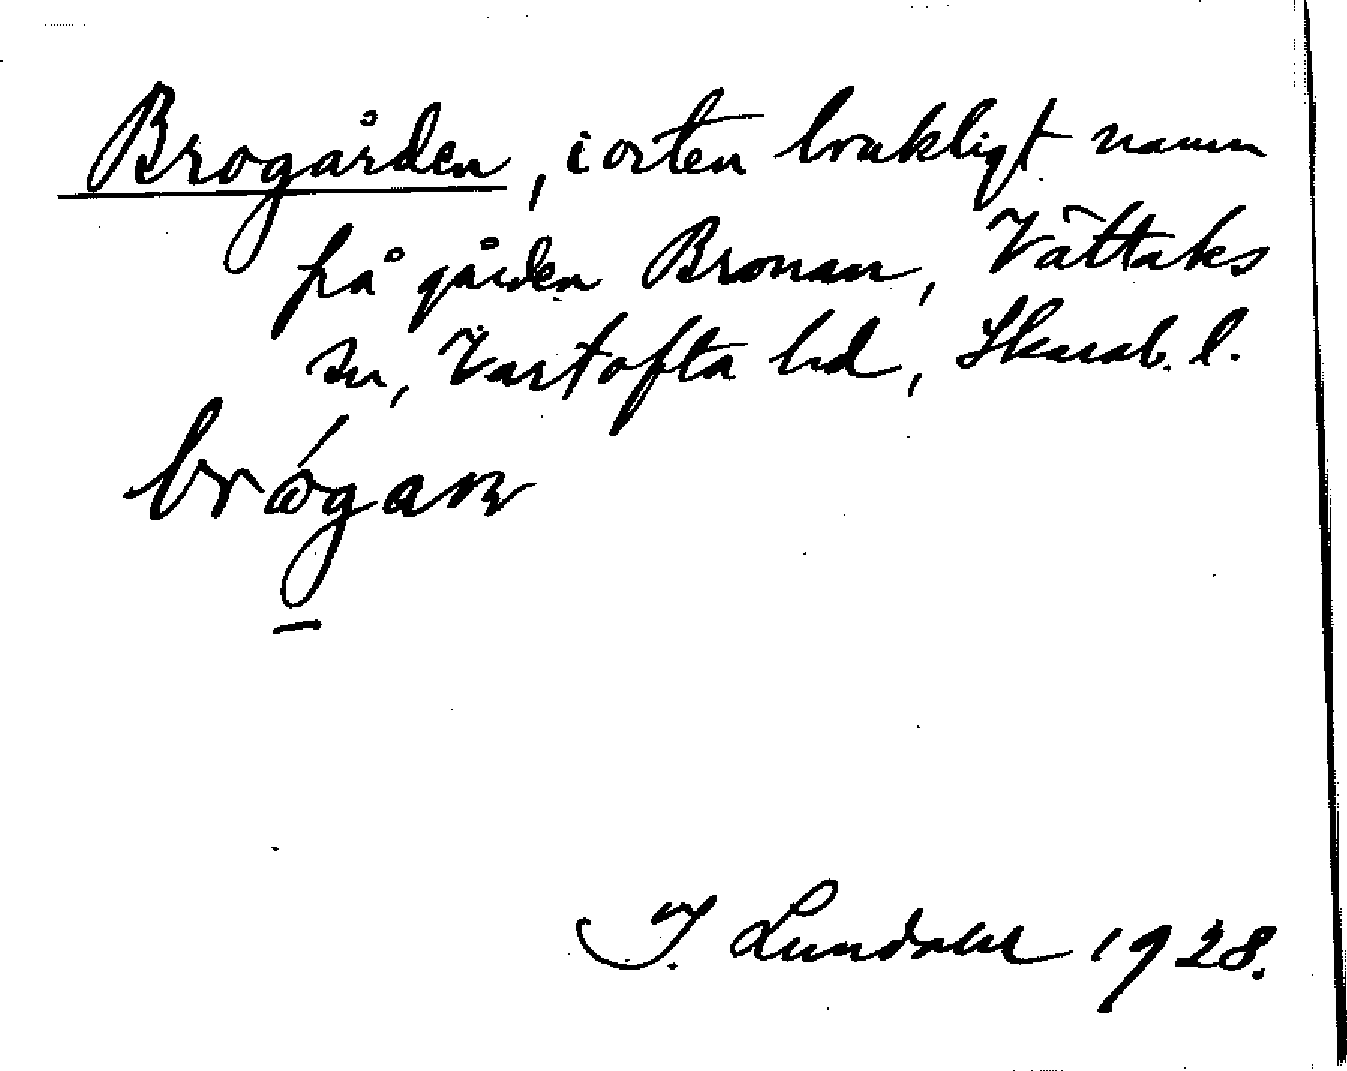 Brogården, i orten brukligt namn
på gården Bronan, Vättaks
sn, Vartofta hd, Skarab. l.
brógan
I. Lundahl 1928.